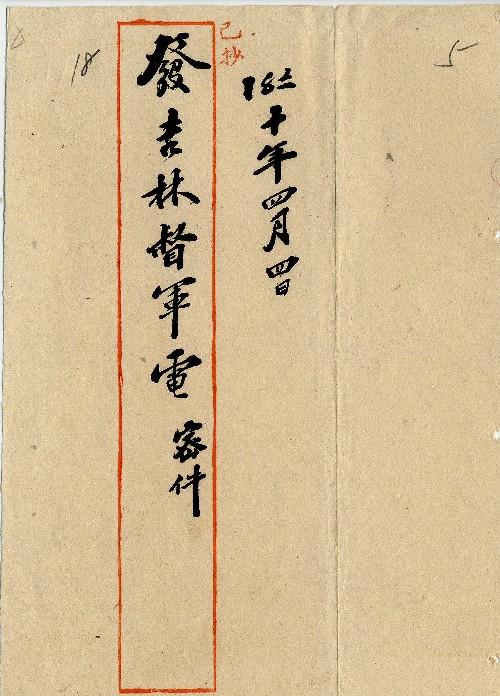 5
18 十年四月四日
已抄
發吉林督軍電 密件
18